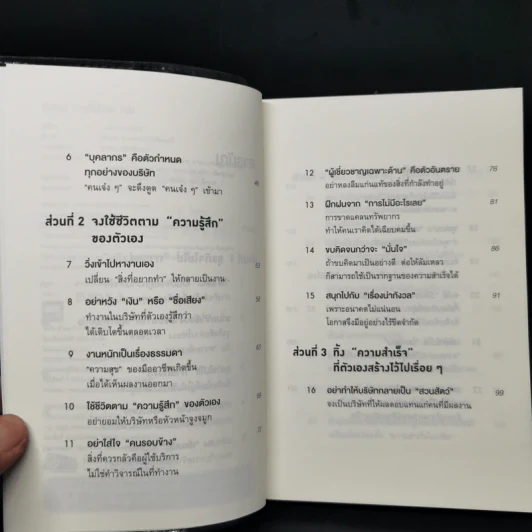 6 "บุคลากร" คือตัวกำหนด
ทุกอย่างของบริษัท
"คนเจ๋ง ๆ" จะดึงดูด "คนเจ๋ง ๆ" เข้ามา
ส่วนที่ 2 จงใช้ชีวิตตาม "ความรู้สึก"
ของตัวเอง
7 วิ่งเข้าไปหางานเอง
เปลี่ยน "สิ่งที่อยากทำ" ให้กลายเป็นงาน
8 อย่าหวัง "เงิน" หรือ "ชื่อเสียง"
ทำงานในบริษัทที่ตัวเองรู้สึกว่า
ได้เติบโตขึ้นตลอดเวลา
9 งานหนักเป็นเรื่องธรรมดา
"ความสุข" ของมืออาชีพเกิดขึ้น
เมื่อได้เห็นผลงานออกมา
10 ใช้ชีวิตตาม "ความรู้สึก" ของตัวเอง
อย่ายอมให้บริษัทหรือหัวหน้าจูงจมูก
11 อย่าใส่ใจ "คนรอบข้าง"
สิ่งที่ควรกลัวคือผู้ใช้บริการ
ไม่ใช่คำวิจารณ์ในที่ทำงาน
12 "ผู้เชี่ยวชาญเฉพาะด้าน" คือตัวอันตราย 76
อย่าหลงลืมแก่นแท้ของสิ่งที่กำลังทำอยู่
13 ฝึกฝนจาก "การไม่มีอะไรเลย" 81
การขาดแคลนทรัพยากร
ทำให้คนเราคิดได้เฉียบคมขึ้น
14 ขบคิดจนกว่าจะ "มั่นใจ" 86
ถ้าขบคิดมาเป็นอย่างดี ต่อให้ล้มเหลว
ก็สามารถใช้เป็นรากฐานของความสำเร็จได้
15 สนุกไปกับ "เรื่องน่ากังวล" 91
เพราะอนาคตไม่แน่นอน
โอกาสจึงมีอยู่อย่างไร้ขีดจำกัด
ส่วนที่ 3 ทิ้ง "ความสำเร็จ"
ที่ตัวเองสร้างไว้ไปเรื่อย ๆ
16 อย่าทำให้บริษัทกลายเป็น "สวนสัตว์" 99
จงเป็นบริษัทที่ให้ผลตอบแทนแก่คนที่มีผลงาน